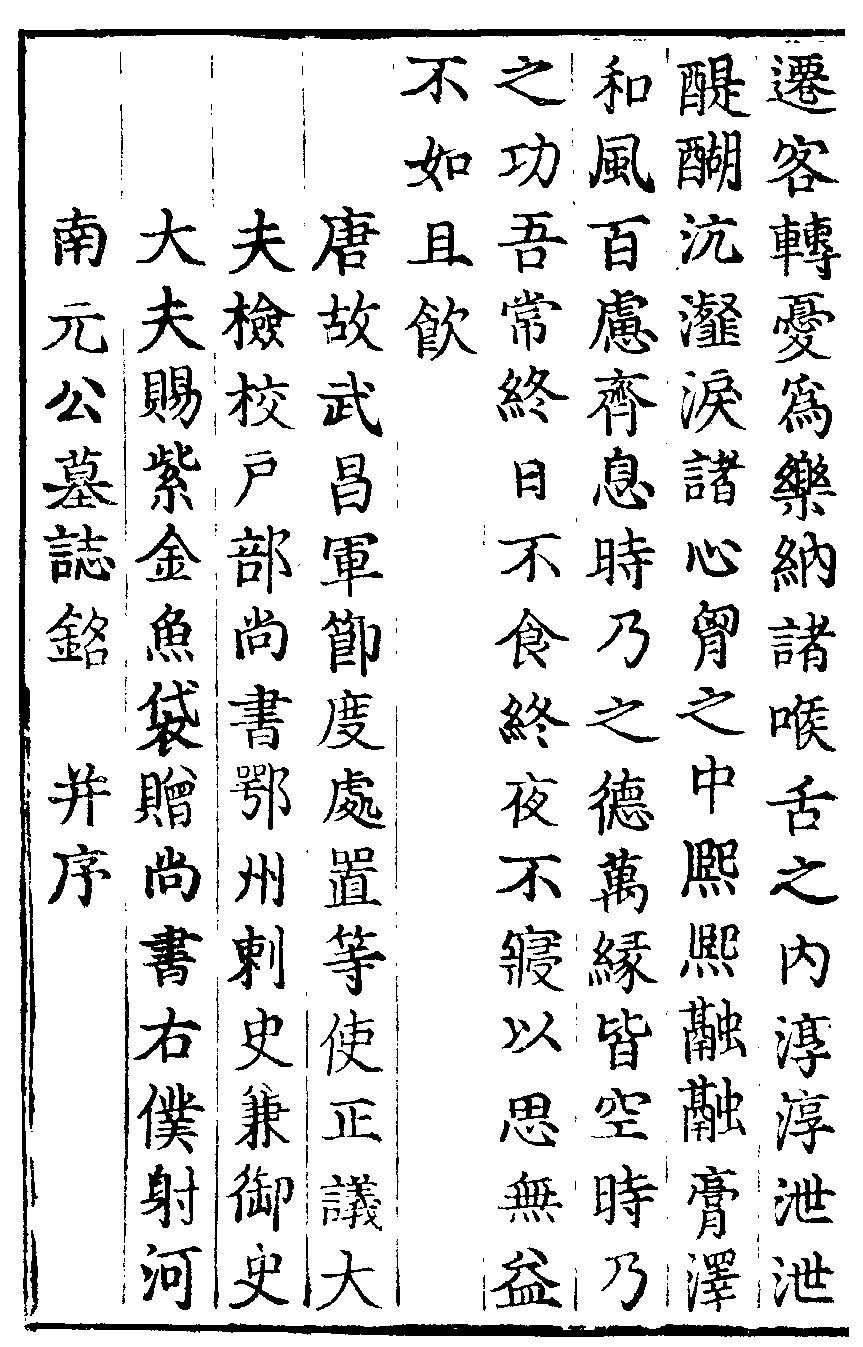 遷客轉憂爲樂納諸喉舌之內淳淳泄泄
醍醐沆瀣淚諸心胷之中熙熙融融膏澤
和風百慮齊息時乃之德萬緣皆空時乃
之功吾常終日不食終夜不寢以思無益
不如且飲
唐故武昌軍節度處置等使正議大
夫檢校戸部尚書鄂州刺史兼御史
大夫賜紫金魚袋贈尚書右僕射河
南元公墓誌銘 并序